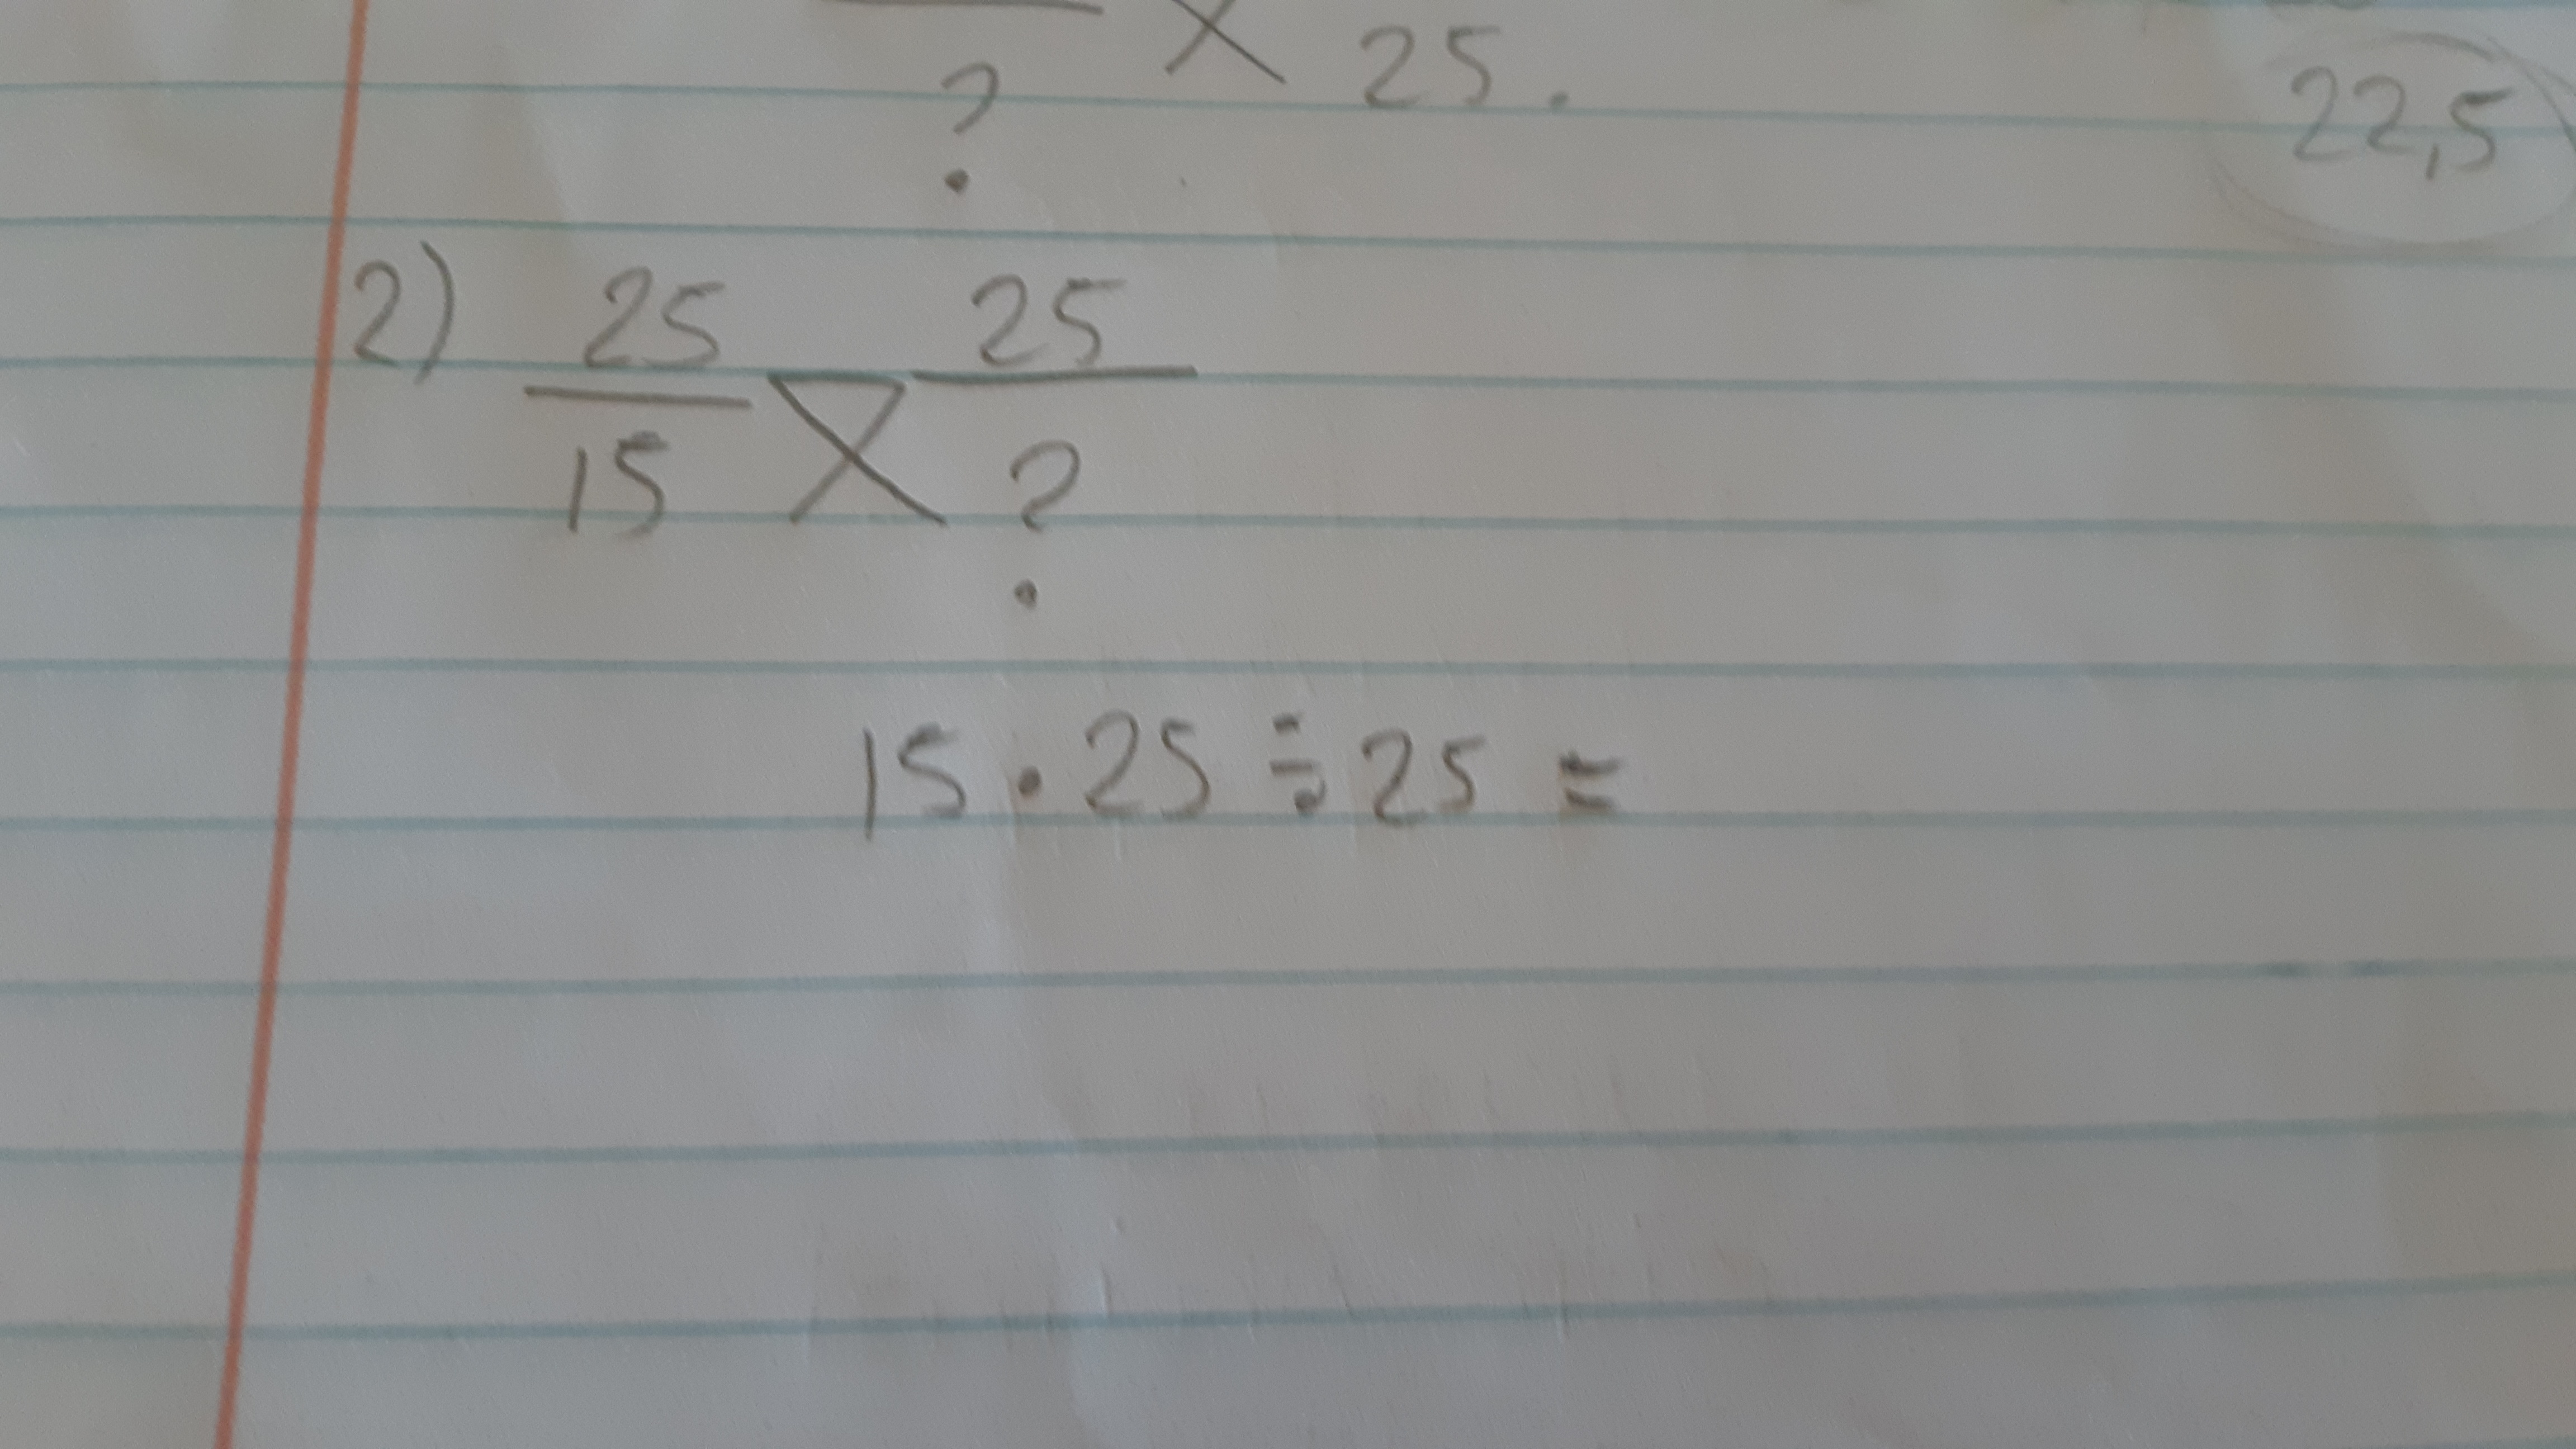 ? X 25.
22,5
2) 25 X 25
15 ?
15 • 25 ÷ 25 =